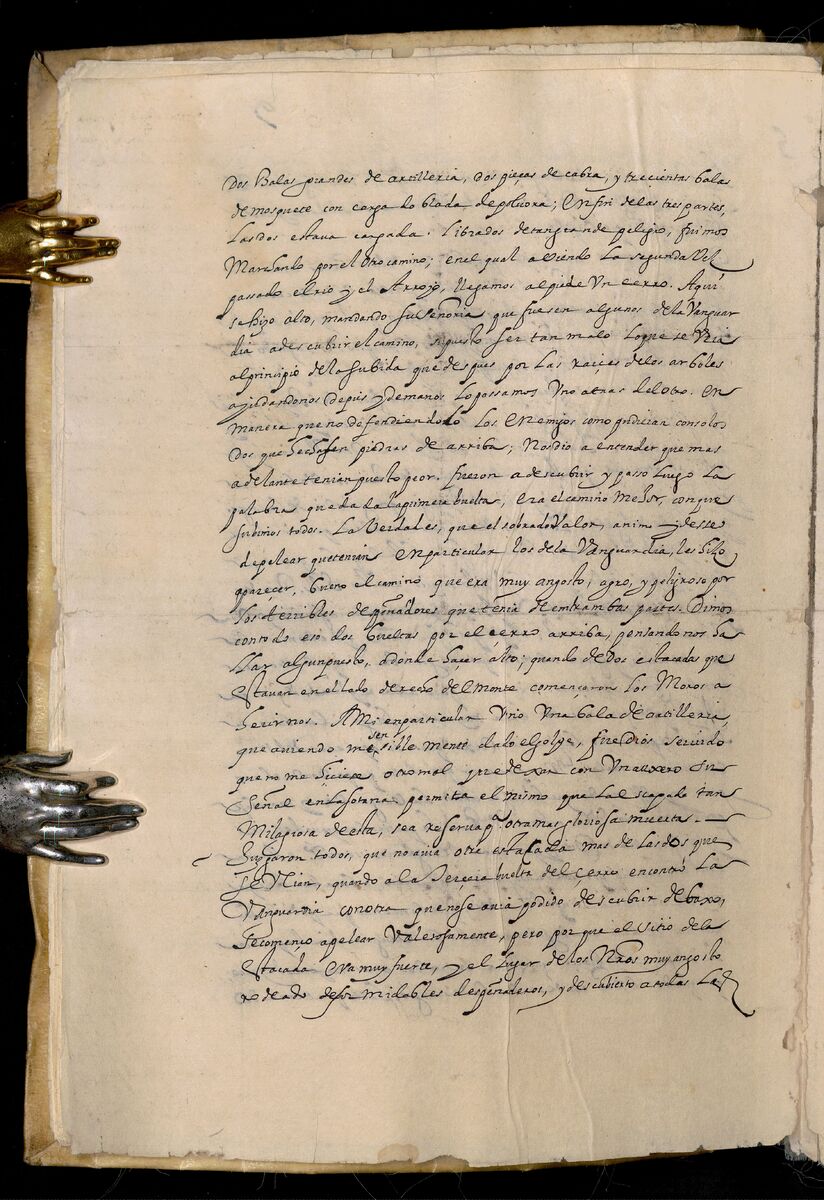 Dos Balas grandes de artilleria, dos pieças de cabra, y trecientas balas
de mosquete con carga doblada de poluora; En fin de las tres partes,
Las dos estava cargada. Librados de tan grande peligro, fuimos
Marchando por el otro camino; en el qual aviendo La segunda vez
passado el rio y el Arroyo, llegamos al pie de Vn cerro. Aqui
se hizo alto, mandando su Senoria que fuesen algunos de la Vanguar
dia a descubrir el camino, supuesto ser tan malo Lo que se via
al principio de la subida que despues por Las raiçes de los arboles
ayudandonos de pies y de manos Lo passamos Vno atras del otro. En
manera que no defendiendolo Los Enemigos como pudieran con solos
Dos que hechasen piedras de arriba; Nos dio a entender que mas
adelante tenian puesto peor. fueron a descubrir y passo Luego La
palabra que dada la primera buelta, era el camino Mejor, con que
subimos todos. La Verdad es, que el sobrado Valor, animo y desseo
de pelear que tenian En particular los de la Vanguardia, les hizo
pareçer, bueno el camino que era muy angosto, agro, y peligroso por
los terribles despeñadores que tenia de entrambas partes. Dimos
con todo eso dos bueltas por el çerro arriba, pensando nos ha
llar algun puesto, adonde haçer alto; quando de Dos estacadas que
Estavan en el lado derecho del monte començaron Los Moros a
herirnos. A Mi en particular Vino Vna bala de artilleria,
que aviendo me sensible mente dado el golpe, fue Dios servido
que no me hiciese otro mal que dexar con Vn auxero su
Señal en La sotana. permita el mismo que La escapada tan
Milagrosa de esta, sea reservar pa. otra mas gloriosa muerte.
Iuzgaron todos, que no avia otra estacada mas de las dos que
se Vian, quando a la Terçera buelta del Cerro encontró La
Vanguardia con otra que no se avia podido descubrir de baxo,
Se començo a pelear Valerosamente, pero por que el sitio de la
Estacada era muy fuerte, y el Lugar de los Nros muy angosto
rodeado de formidables despeñaderos, y descubierto a todas Las